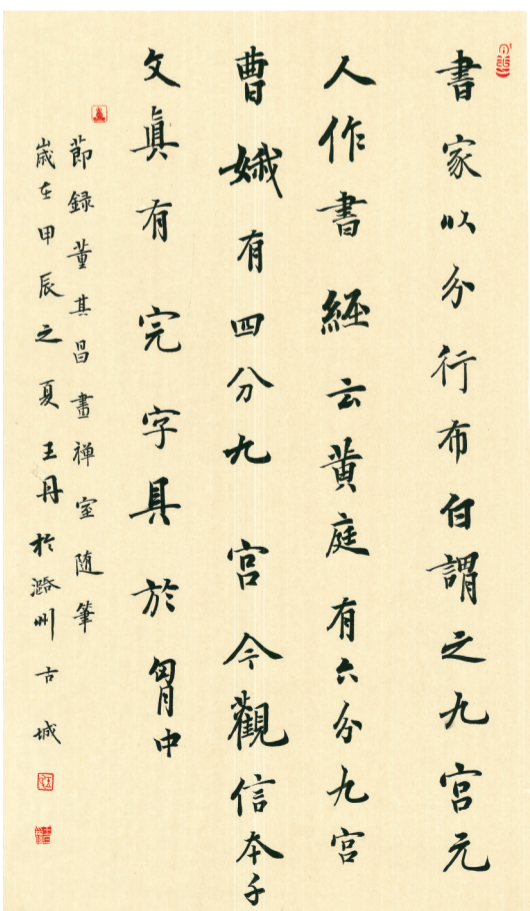 書家以分行布白謂之九宮元
人作書經云黃庭有六分九宮
曹娥有四分九宮今觀信本千
文眞有完字具於胷中
節録董其昌畫禅室随筆
歲在甲辰之夏王丹於潞州古城